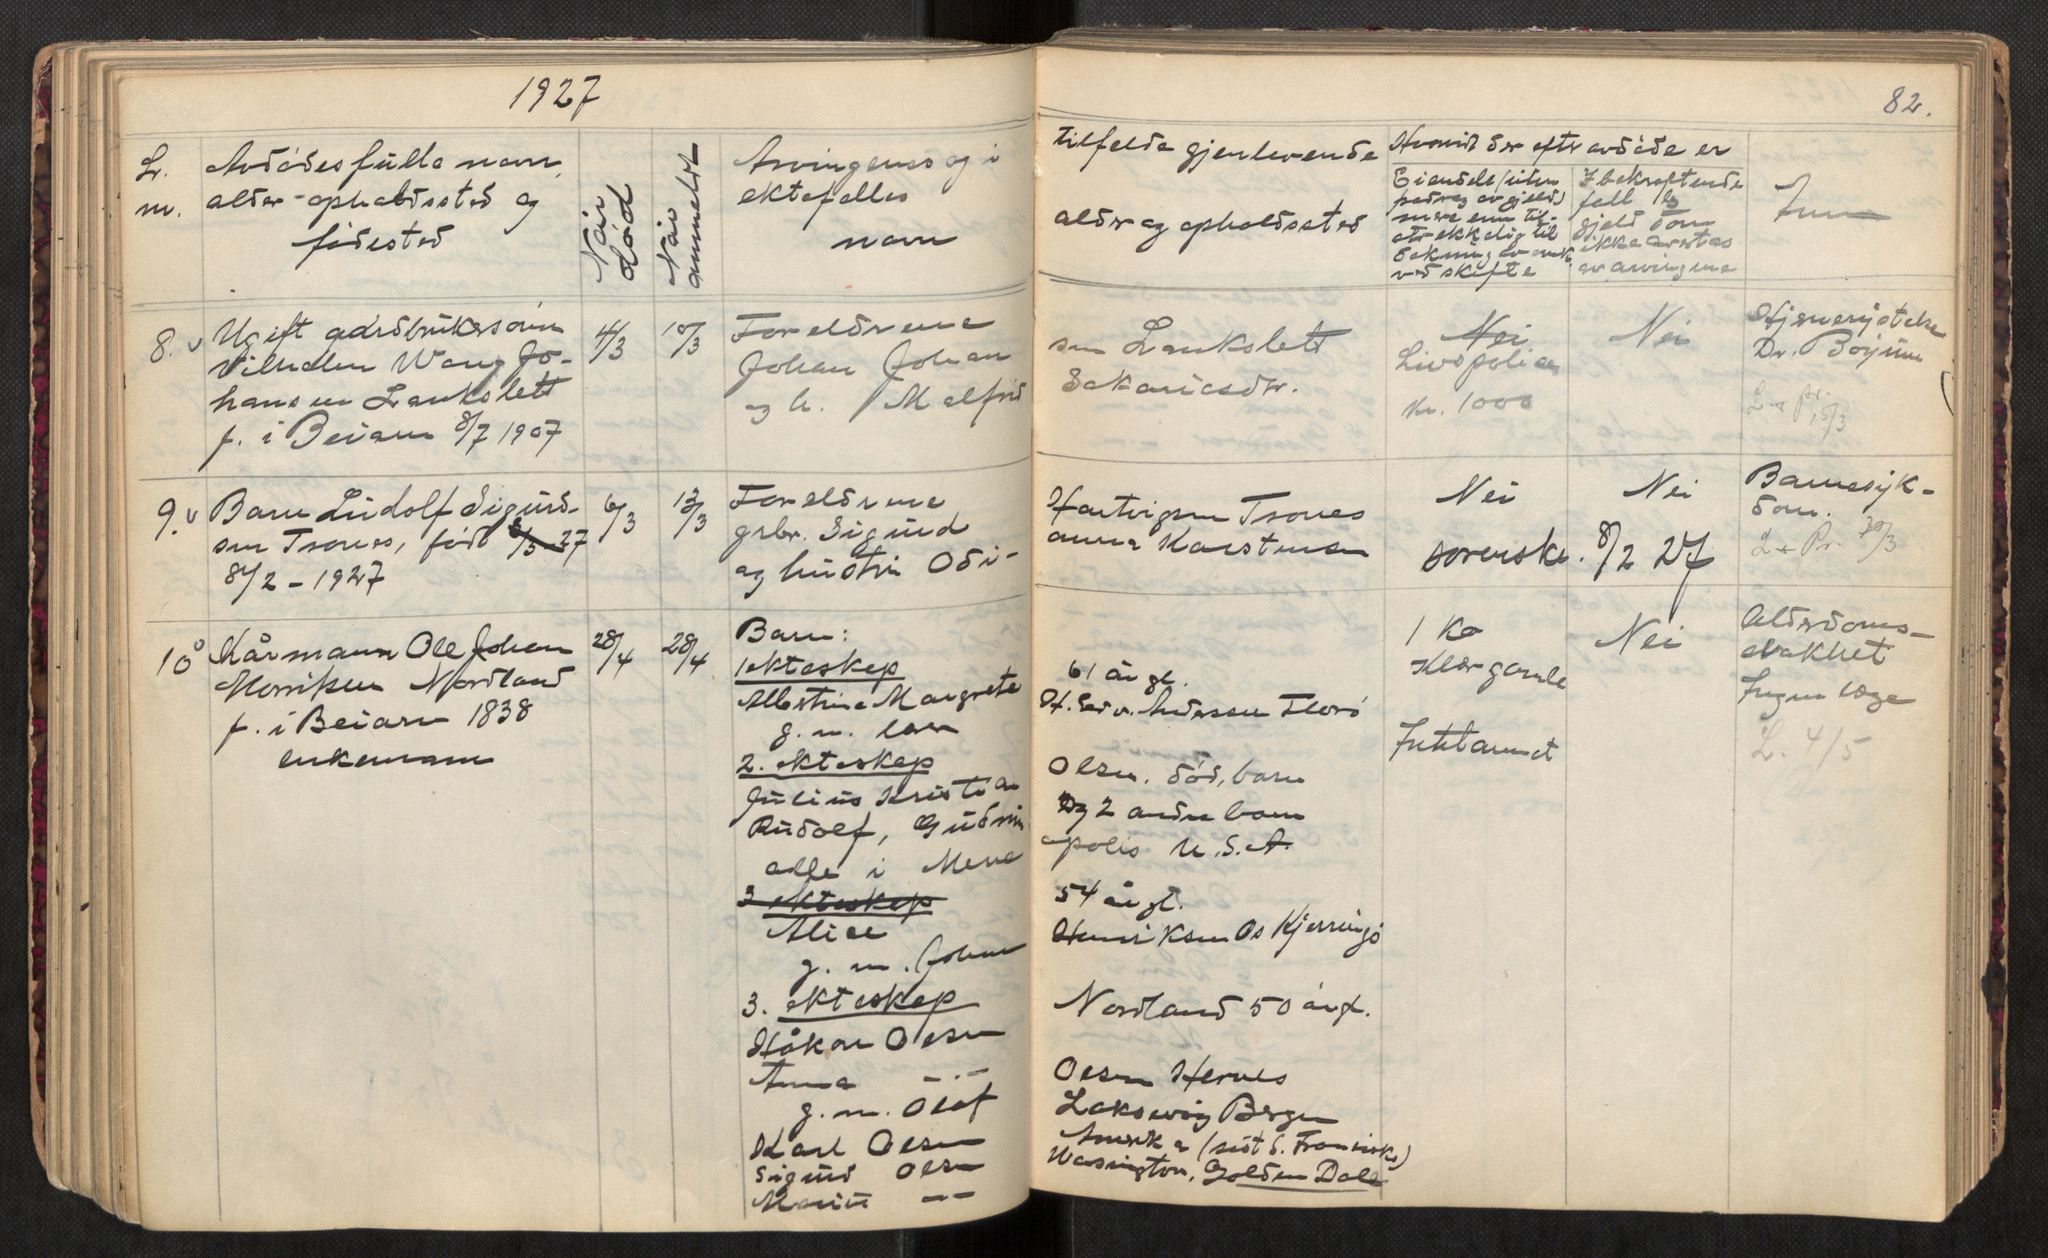 1927
82.
Lr.
m.
Avdödes fulle navn,
alder - opholdssted og
födested
Når
död
Når
anmeldt
Arvingenes og i
ektefelles
navn
tilfelde gjenlevende
alder og opholdssted
Hvorvidt der efter avdöde er
Eiendele (uten
fradrag av gjeld)
mere enn til-
strekkelig til
dekning av omk.
ved skifte
I bekreftende
fall og
gjeld som
ikke overtas
av arvingene
8. v
Ugift gårdbrukersönn
Vilhelm Wang Jo-
hansen Lankslett
f. i Beiarn 8/7 1907
4/3
10/3
Foreldrene
Johan Johan
og h. Malfrid
sen Lankslett
Sakariasdtr.
Nei
Livspolise
kr. 1000
Nei
Hjernerystelse
Dr. Böyum
L + pr.
15/3
9. v
Barn Ludolf Sigurd-
sen Tsones, född 6/3-27
8/2 - 1927
6/3
13/3
Foreldrene
grbr. Sigurd
og hustru Odi-
Hartvigsen Tsones
anna Karstensen
Nei
sorenskr. 8/2 27
Nei
Barnesyk-
dom.
L + Pr. 30/3
10
Kårmann Ole Johan
Henriksen Nordland
f. i Beiarn 1838
enkemann
28/4
28/4
Barn:
1 ekteskap
Albertine Margrete
g. m. lær
2. ekteskap
Julius Kristian
Rudolf, Gudrun
alle i Minne
3 ekteskap
Alice
g. m. Johan
3. ekteskap
Håkon Olsen
Anna - . -
g. m. Olaf
Karl Olsen
Sigurd Olsen
Marius - -
61 år gl.
H. Edv. Andersen Florö
Olsen. död, barn
Og 2 andre barn
apolis U.S.A.
54 år gl.
Henriksen Os Kjerringö
Nordland 50 år gl.
Olsen Hernes
Laksevåg Bergen
Amerika (sist S. Fransisko)
Wasington, Golden Dale
1 ko
Klær gamle
Intet annet
Nei
Alderdoms-
svakhet
Ingen læge
L. 4/5